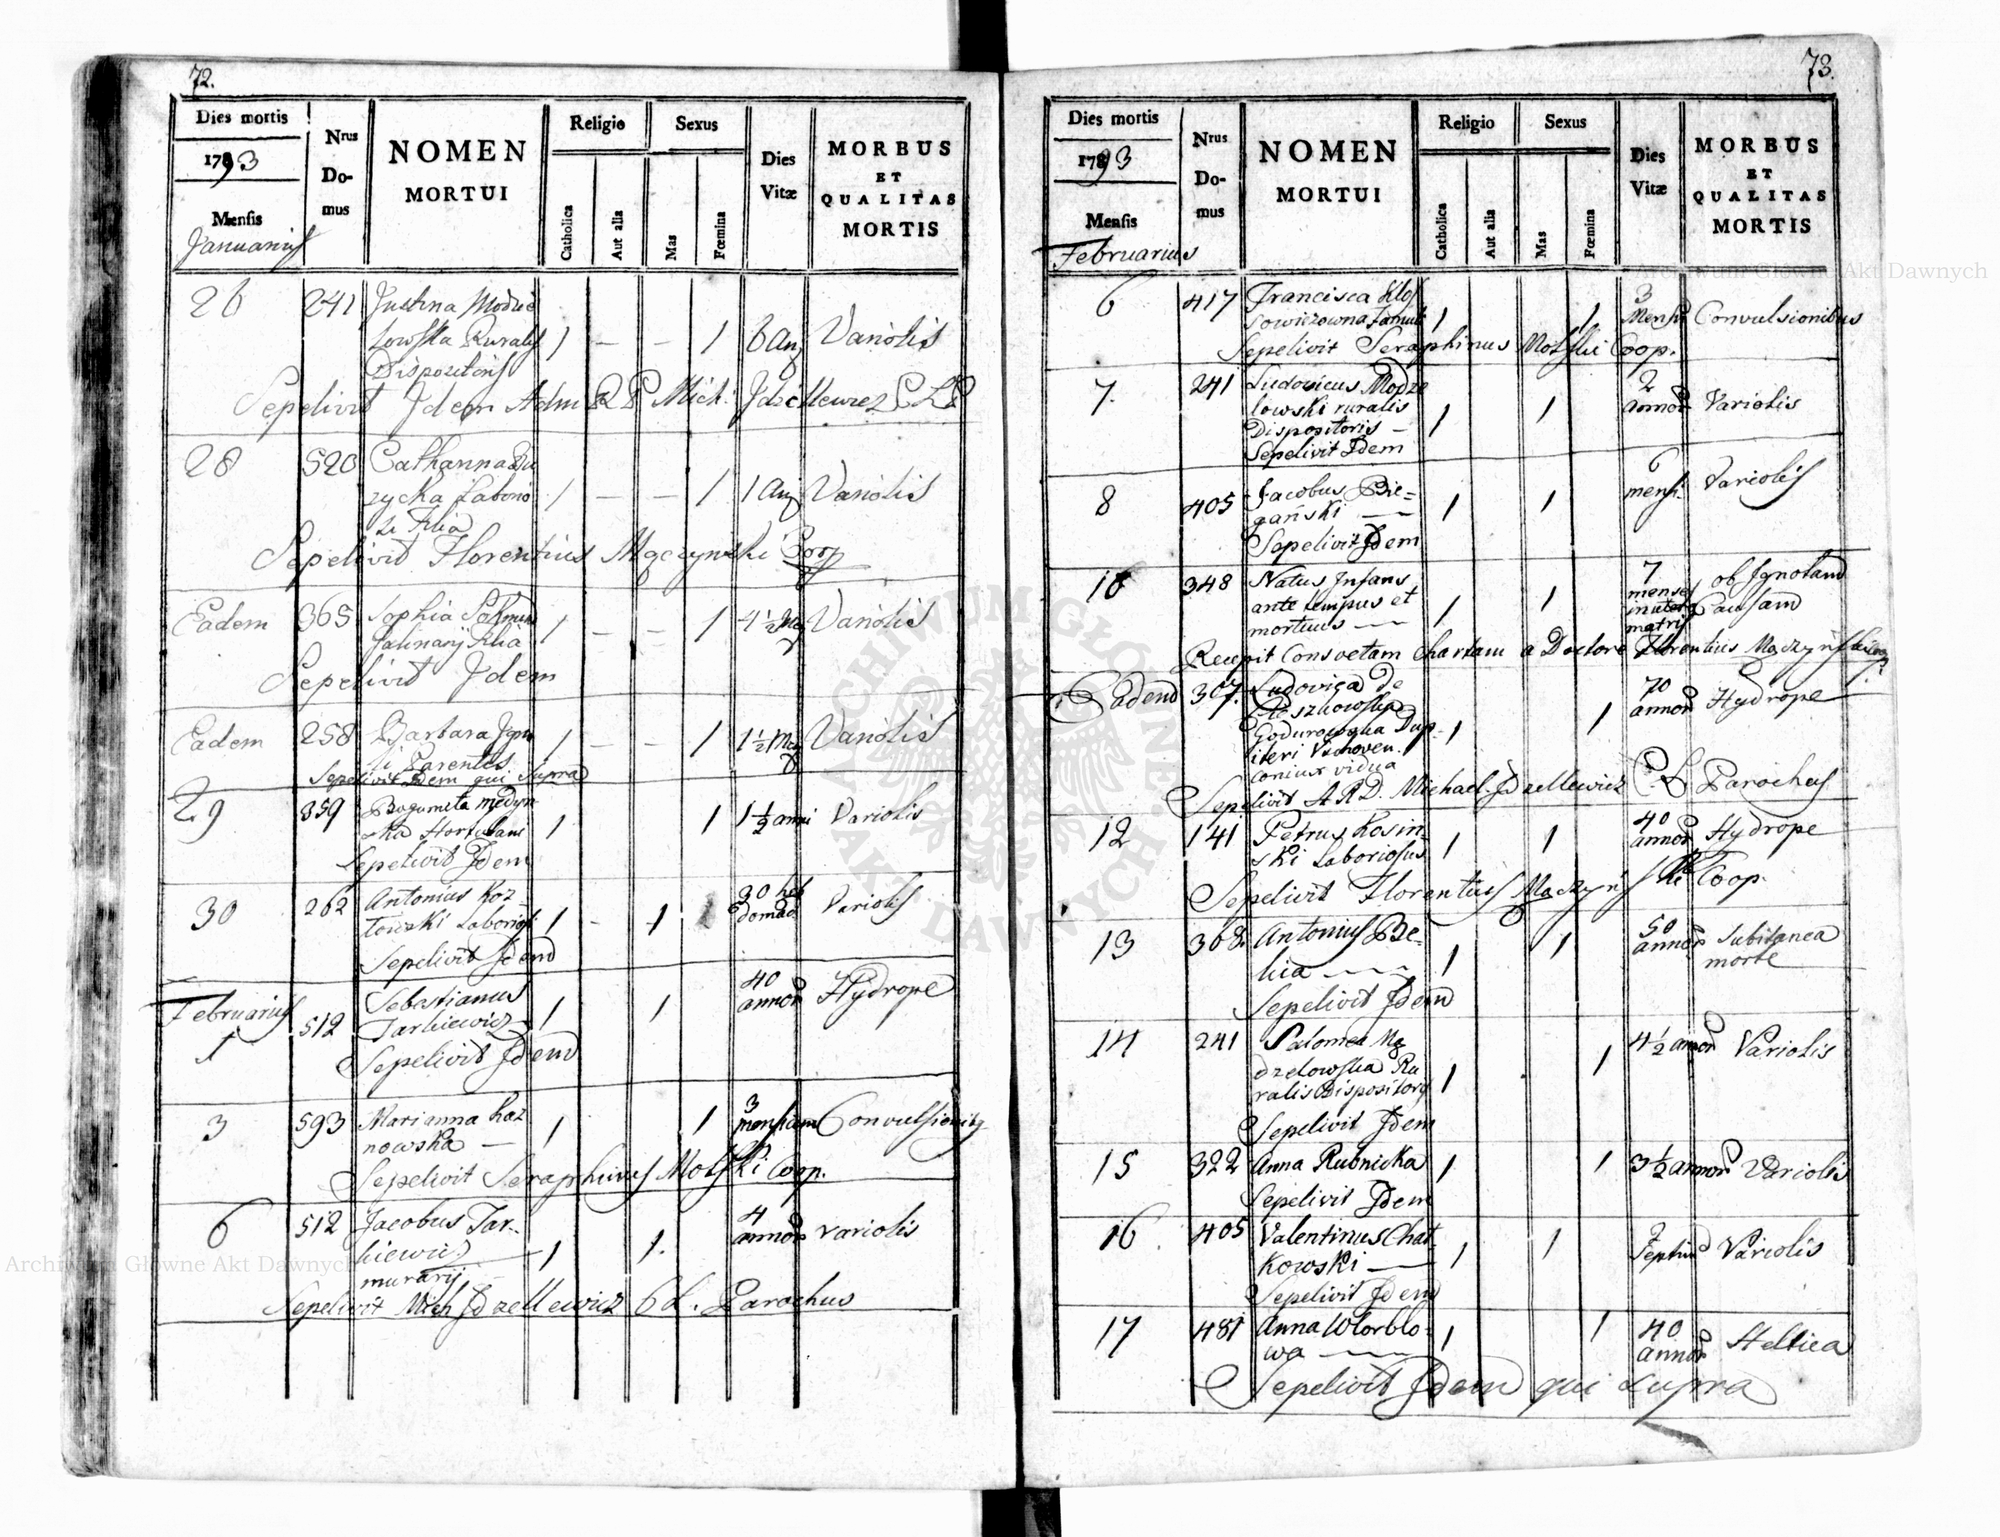 72.
Dies mortis
1793
Mensis
Januarius
Nrus Do-mus
NOMEN
MORTUI
Religio
Catholica
Aut alia
Sexus
Mas
Fœmina
Dies Vitæ
MORBUS
ET
QUALITAS
MORTIS
26 241 Justina Modze
lowska Ruralis 1 — — 1 6 An Variolis
Dispozitoris
Sepelivit Idem Adm R P Mich: Jdzellewicz
28 520 Catharina
zycka Laborio 1 — — 1 1 An Variolis
si Filia
Sepelivit Florentius Mączynski Coop
Eadem 365 Sophia
Filia 1 — — 1 4½ Variolis
Sepelivit Idem
Eadem 258 Barbara Igno
ti Parentes 1 — — 1 1½ Variolis
Sepelivit Idem qui Supra
29 359 Bogumila Medyn
ska Hortulani 1 1 1½ anni Variolis
Sepelivit Idem
30 262 Antonius Koz
lowski Laboriosi 1 — 1 30 heb domad Variolis
Sepelivit Idem
Februarius
1 512 Sebastianus
Tarkiewicz 1 1 40 annor Hydrope
Sepelivit Idem
3 593 Marianna Koz
nowska — 1 1 3 mensium Convulsionibq
Sepelivit Seraphinus Motski Coop.
6 512 Jacobus Tar-
kiewicz 1 1. 4 annor Variolis
murarij
Sepelivit Mich Jdzellewicz Parochus
73.
Dies mortis
1793
Mensis
Februarius
Nrus Do-mus
NOMEN
MORTUI
Religio
Catholica
Aut alia
Sexus
Mas
Fœmina
Dies Vitæ
MORBUS
ET
QUALITAS
MORTIS
6 417 Francisca Klos
sowiczowna famuli 1 1 3 Mensi Convulsionibus
Sepelivit Seraphinus Motski Coop.
7. 241 Ludovicus Modze
lowski ruralis 1 1 2 annor Variolis
Dispositoris —
Sepelivit Idem
8 405 Jacobus Bie=
gański — 1 1 6 mensi Variolis
Sepelivit Idem
10 348 Natus Infans
ante tempus et 1 1 7 menses in utero matris ob Ignotam Causam
mortuus —
Recepit Consvetam Chartam a Doctore Florentius Mączyński Coop
Eadem 307. Ludovica de
1 1 70 annor Hydrope
coniux vidua
Sepelivit A R D. Michael Jdzellewicz Parochus
12 141 Petrus Kosin-
ski Laboriosus 1 1 40 annor Hydrope
Sepelivit Florentius Mączyński Coop.
13 308. Antonius Be-
lia — 1 1 50 annor Subitanea morte
Sepelivit Idem
14 241 Salomea Mo
dzelowska Ru 1 1 4½ annor Variolis
ralis Dispository
Sepelivit Idem
15 322 Anna Rubnicka 1 1 3½ annor Variolis
Sepelivit Idem
16 405 Valentinus Chat-
kowski — 1 1 2 Septim Variolis
Sepelivit Idem
17 481 Anna Worblo-
wa — 1 1 40 annor Hectica
Sepelivit Idem qui Supra
ARCHIWUM GŁÓWNE AKT DAWNYCH
Archiwum Główne Akt Dawnych
Archiwum Główne Akt Dawnych